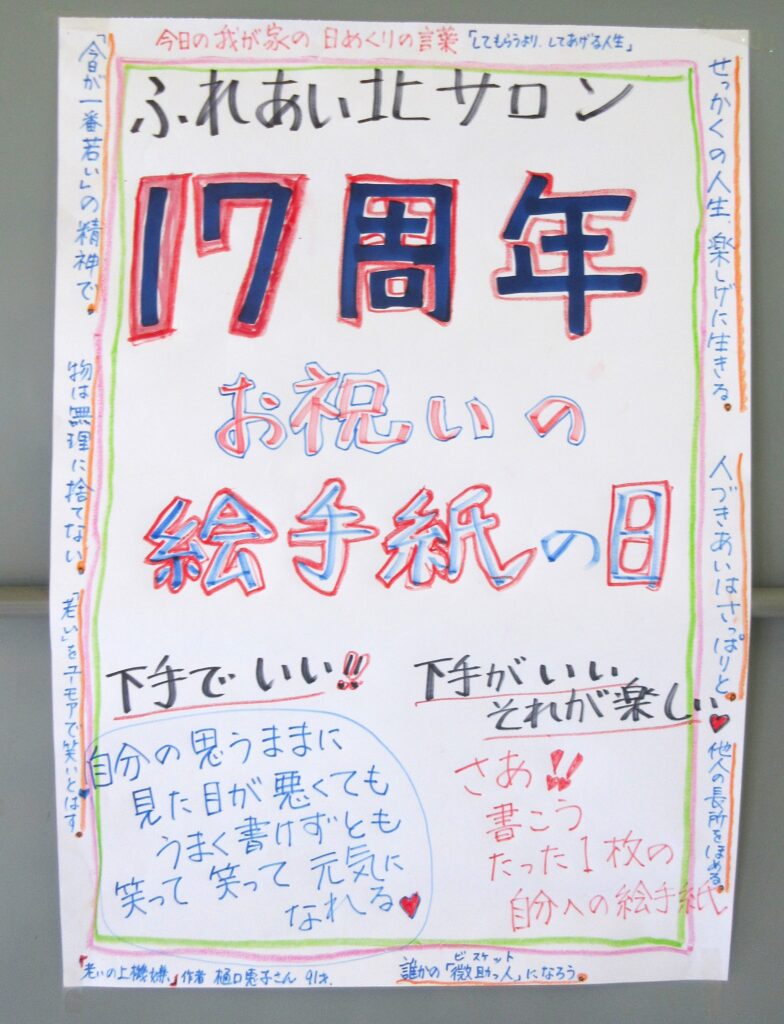 今日の我が家の 日めくりの言葉「してもらうより、してあげる人生」
ふれあい北サロン
17周年
お祝いの
絵手紙の日
下手でいい!!
自分の思うままに
見た目が悪くても
うまく書けずとも
笑って 笑って 元気に
なれる♥
下手がいい
それが楽しい♥
さあ!!
書こう
たった1枚の
自分への絵手紙
せっかくの人生、楽しげに生きる。
人づきあいはさっぱりと。
他人の長所をほめる。
「今日が一番若い」の精神で。
物は無理に捨てない。
「老い」をユーモアで笑いとばす。
「老いの上機嫌」作者 樋口恵子さん 91才.
ビスケット
誰かの「微助っ人」になろう。